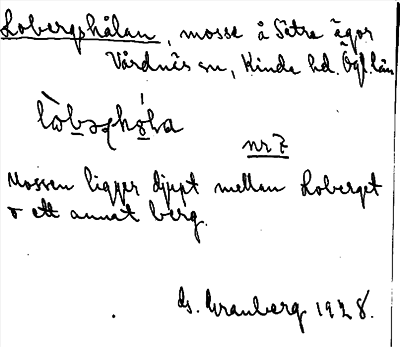 Lobergshålan, mosse å Sätra ägor
Vårdnäs sn, Kinda hd. Ögl. län
nr 7
Mossen ligger djupt mellan Loberget
o ett annat berg.
G. Granberg 1928.